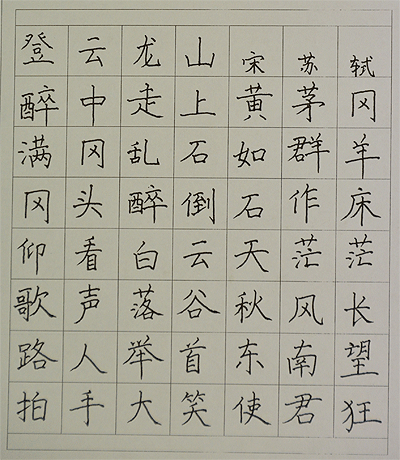 登云龙山 宋苏轼
醉中走上黄茅冈
满冈乱石如群羊
冈头醉倒石作床
仰看白云天茫茫
歌声落谷秋风长
路人举首东南望
拍手大笑使君狂